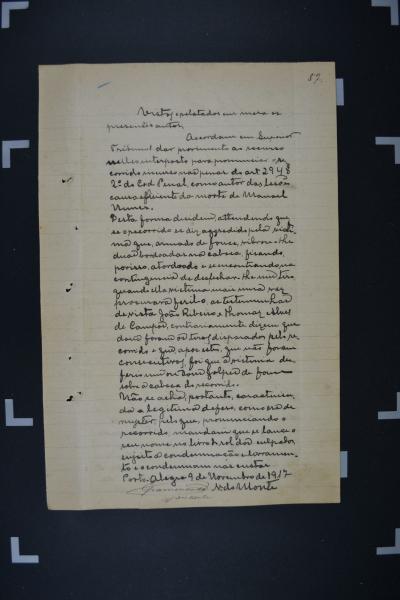 87.
Vistos, relatados em mesa os
presentes autos,
Accordam em Superior
Tribunal dar provimento ao recurso
nelles interposto para pronunciar o re-
corrido incurso nas penas do art. 294 §
2º do Cod. Penal, como autor das lesões
causa efficiente da morte de Manoel
Nunes.
Desta forma decidem, attendendo que
se o recorrido se diz aggredido pela victi-
ma que, armado de fouce, vibrou-lhe
duas bordoadas na cabeça, ficando,
por isso, atordoado e se encontrando na
contingencia de desfechar-lhe um tiro
quando ella victima mais uma vez
procurava feril-o, as testemunhas
de vista João Ribeiro e Thomaz Alves
de Campos, contrariamente dizem que
dous foram os tiros disparados pelo re-
corrido e que, apos estes, que não foram
consecutivos, foi que a victima des-
feriu um ou dous golpes de fouce
sobre a cabeça do recorrido.
Não se acha, portanto, caracterisa-
da a legitima defesa, como era de
mister, pelo que, pronunciando o
recorrido, mandam que se lance o
seu nome no livro do rol dos culpados,
sujeito a condemnação e livramen-
to e o condemnam nas custas.
Porto Alegre 9 de Novembro de 1917
N. do Monte